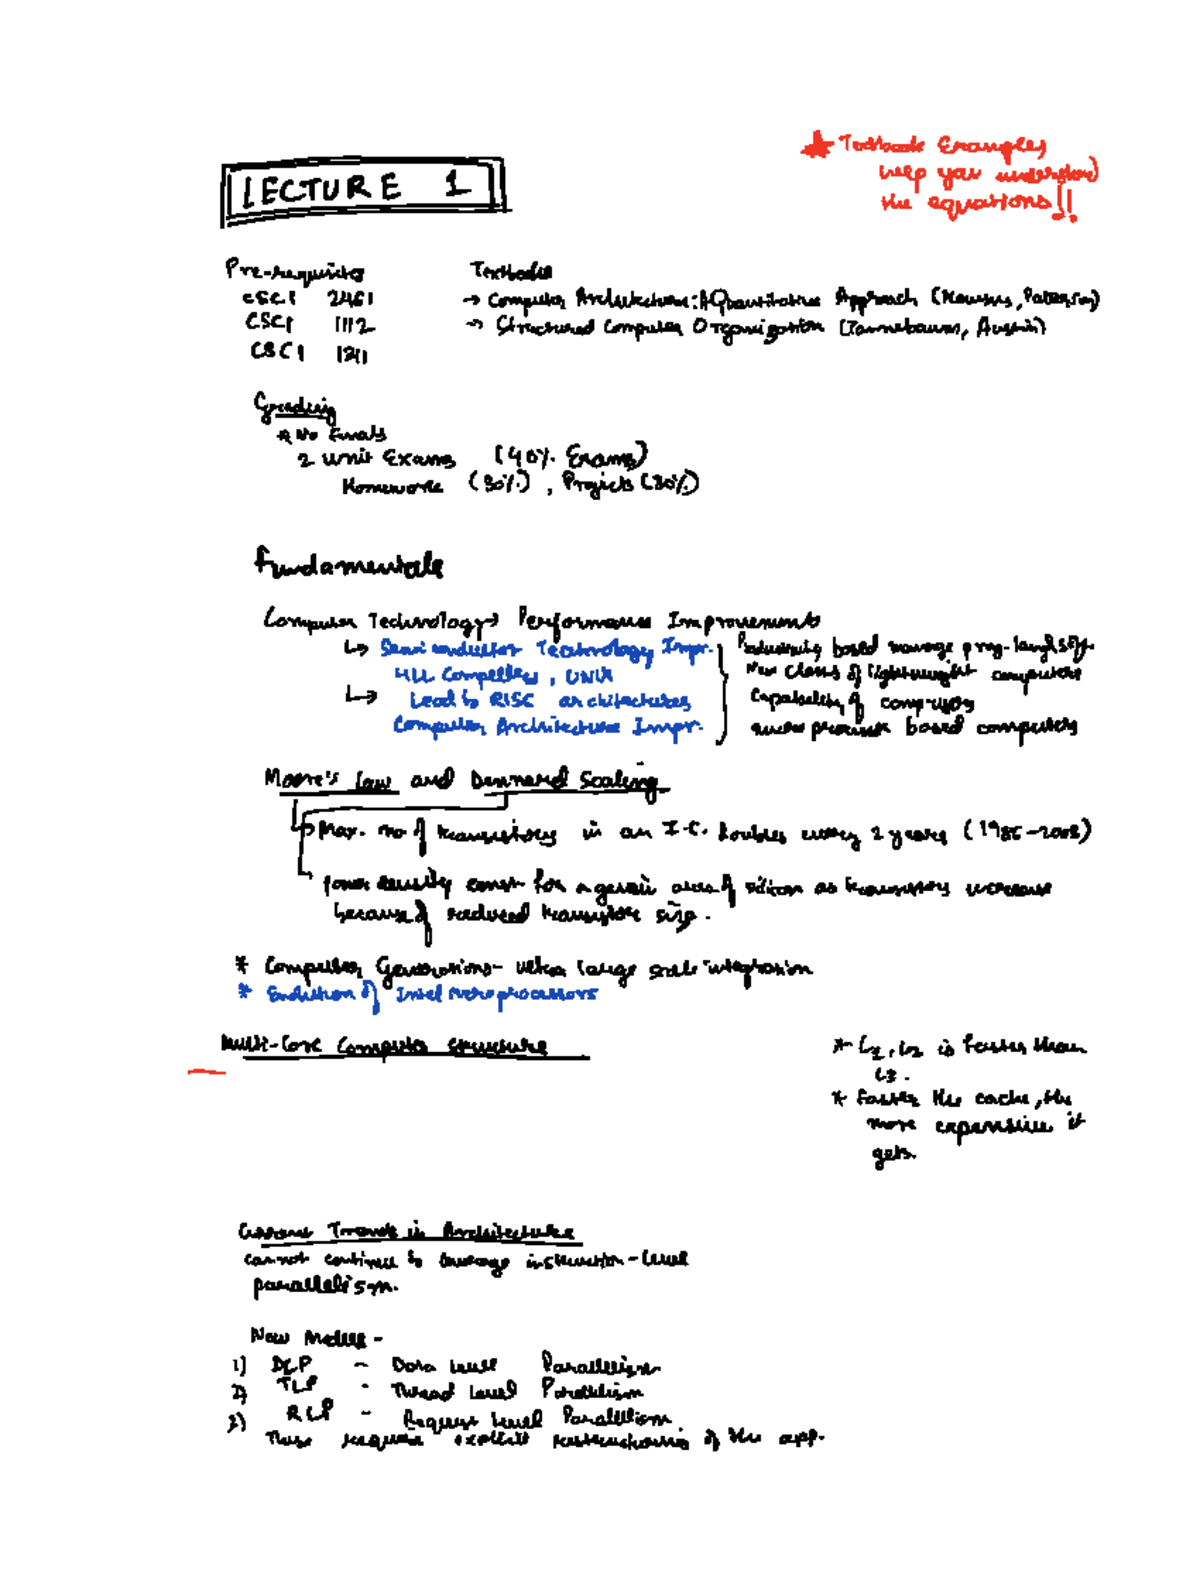 LECTURE 1
★ Textbook Examples
help you understand
the equations!!
Pre-requisites
CSCI 2461
CSCI 1112
CSCI 1311
Textbooks
→ Computer Architecture: A Quantitative Approach (Hennessy, Patterson)
→ Structured Computer Organization (Tannebaum, Austin)
Grading
* No Finals
2 Unit Exams (40% Exams)
Homework (30%), Projects (30%)
Fundamentals
Computer Technology → Performance Improvements
↳ Semiconductor Technology Impr.
HLL Compilers, UNIX
↳ Lead to RISC architectures
Computer Architecture Impr.
Productivity based manage prog. lang
New class of lightweight computers
Capability of computers
microprocessor based computers
Moore's Law and Dennard Scaling
↳ Max. no of transistors in an I.C. doubles every 2 years (1986-2003)
↳ Power density const for a given area of silicon as transistors increase
because of reduced transistor size.
* Computer Generations - Ultra large scale integration
* Evolution of Intel Microprocessors
Multi-Core Computer Structure
* L1, L2 is faster than
L3.
* Faster the cache, the
more expensive it
gets.
Current Trends in Architecture
cannot continue to leverage instruction-level
parallelism.
New Models -
1) DLP - Data Level Parallelism
2) TLP - Thread Level Parallelism
3) RLP - Request Level Parallelism
These require explicit restructuring of the app.